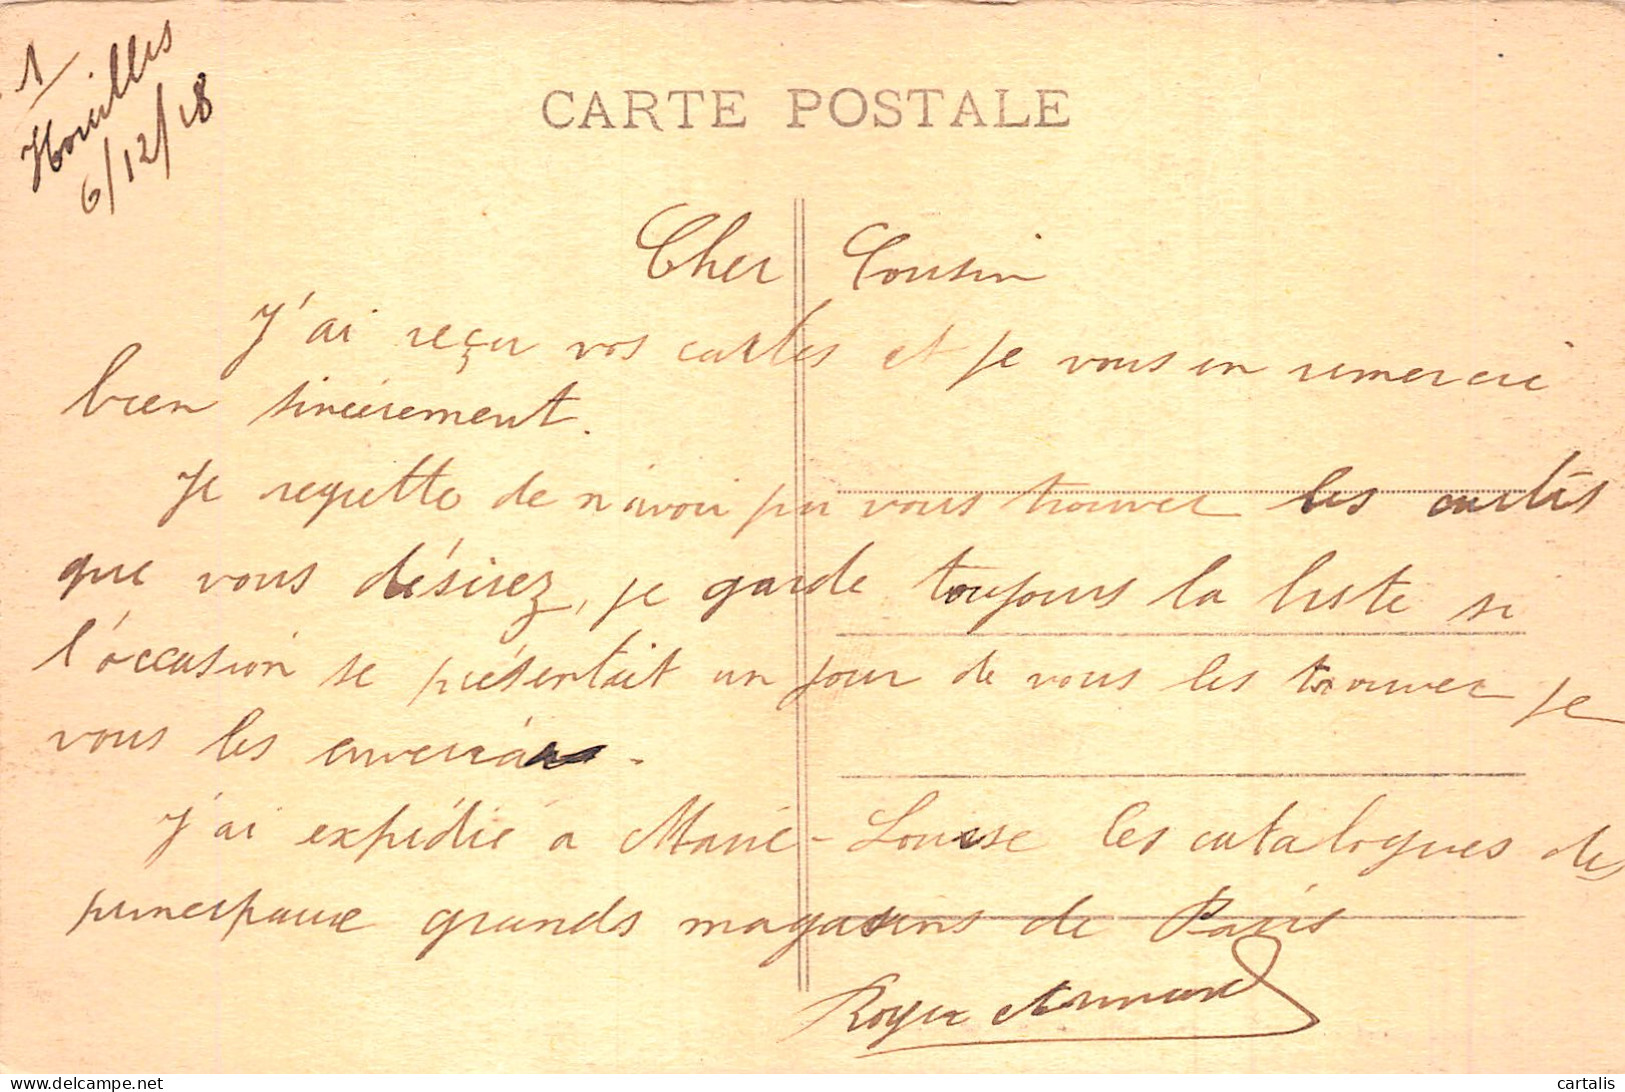 1
Houilles
6/12/18
CARTE POSTALE
Cher Cousin
J'ai reçu vos cartes et je vous en remercie
bien sincèrement.
Je regrette de n'avoir pu vous trouver les cartes
que vous désirez, je garde toujours la liste si
l'occasion se présentait un jour de vous les trouver je
vous les enverrai.
J'ai expédié à Marie-Louise les catalogues des
principaux grands magasins de Paris
Roger Armand
www.delcampe.net
cartalis